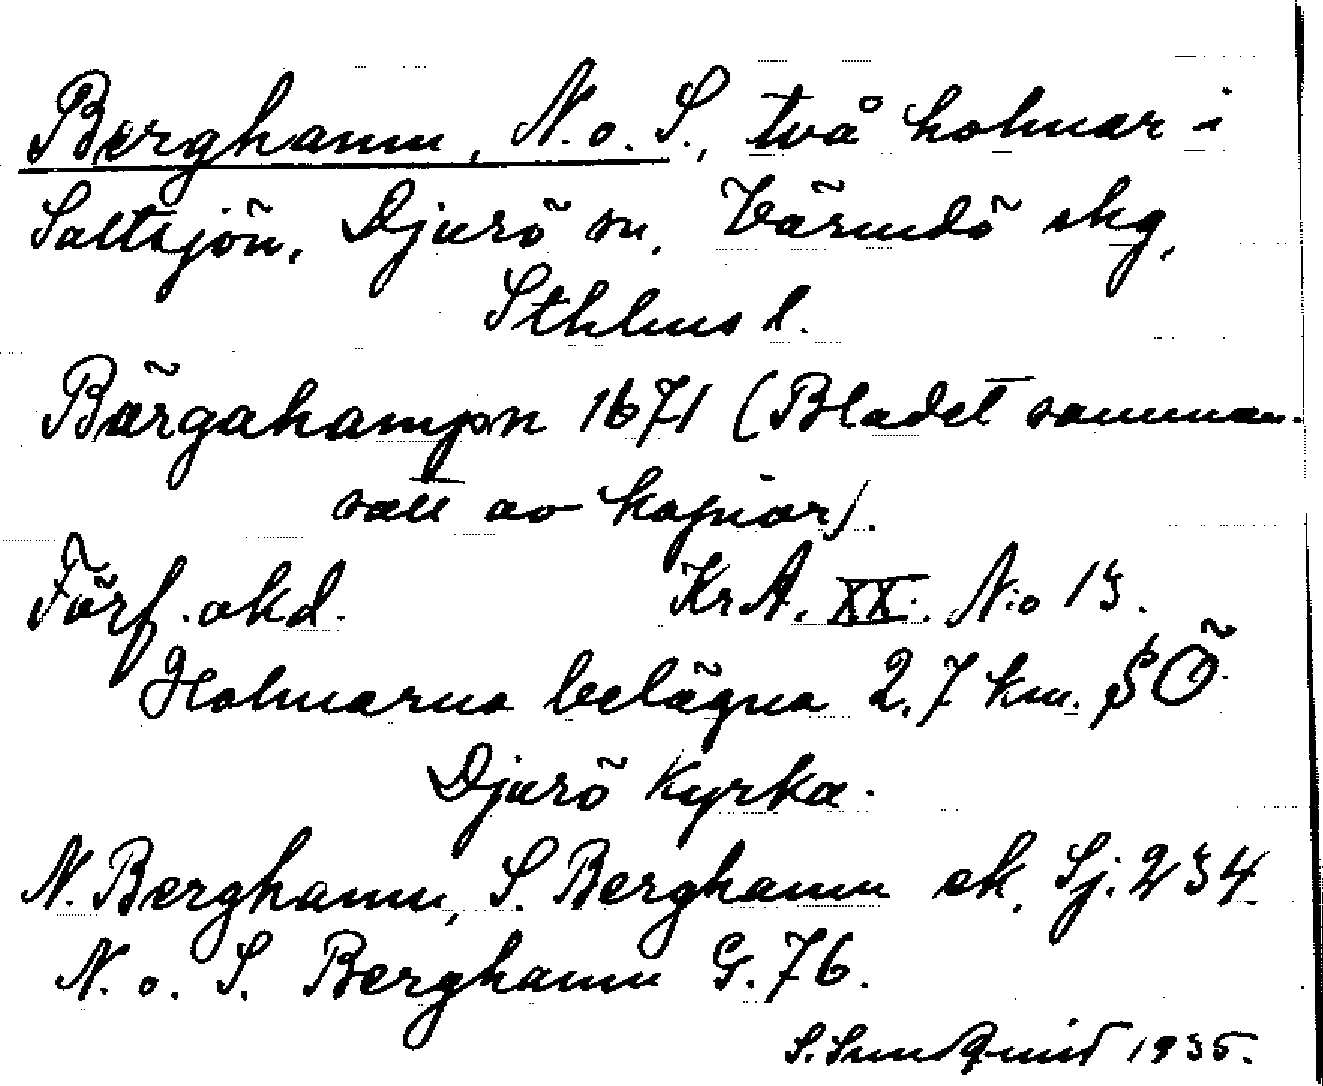 Berghamn, N. o. S., två holmar i
Saltsjön, Djurö sn, Värmdö skg,
Sthlms l.
Bärgahampn 1671 (Bladet samman-
satt av kopior).
Förf. okd. KrA. XX. N:o 13.
Holmarna belägna 2,7 km. SÖ
Djurö kyrka.
N. Berghamn, S. Berghamn ek. Sj. 234
N. o. S. Berghamn G. 76.
S. Sundquist 1935.